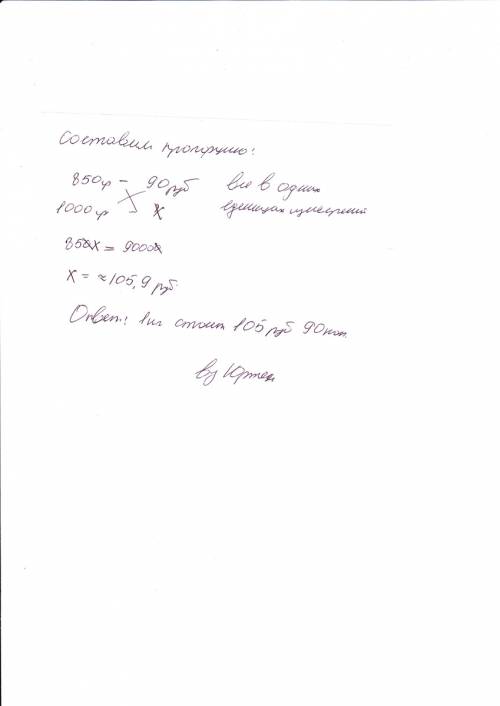 Составим пропорцию:
850гр – 90 руб все в одних
1000гр x единицах измерений
850x = 90000
x = ≈105,9 руб.
Ответ: 1кг стоит 105 руб 90 коп.
by